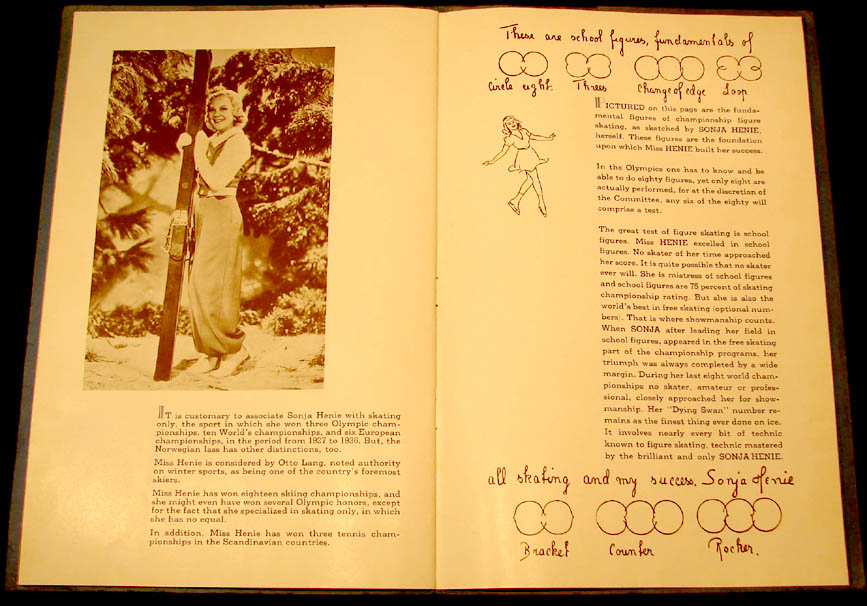 IT is customary to associate Sonja Henie with skating
only, the sport in which she won three Olympic cham-
pionships, ten World's championships, and six European
championships, in the period from 1927 to 1936. But, the
Norwegian lass has other distinctions, too.
Miss Henie is considered by Otto Lang, noted authority
on winter sports, as being one of the country's foremost
skiers.
Miss Henie has won eighteen skiing championships, and
she might even have won several Olympic honors, except
for the fact that she specialized in skating only, in which
she has no equal.
In addition, Miss Henie has won three tennis cham-
pionships in the Scandinavian countries.
These are school figures, fundamentals of
Circle eight. Threes Change of edge Loop
PICTURED on this page are the funda-
mental figures of championship figure
skating, as sketched by SONJA HENIE,
herself. These figures are the foundation
upon which Miss HENIE built her success.
In the Olympics one has to know and be
able to do eighty figures, yet only eight are
actually performed, for at the discretion of
the Committee, any six of the eighty will
comprise a test.
The great test of figure skating is school
figures. Miss HENIE excelled in school
figures. No skater of her time approached
her score. It is quite possible that no skater
ever will. She is mistress of school figures
and school figures are 75 percent of skating
championship rating. But she is also the
world's best in free skating (optional num-
bers). That is where showmanship counts.
When SONJA after leading her field in
school figures, appeared in the free skating
part of the championship programs, her
triumph was always completed by a wide
margin. During her last eight world cham-
pionships no skater, amateur or profes-
sional, closely approached her for show-
manship. Her "Dying Swan" number re-
mains as the finest thing ever done on ice.
It involves nearly every bit of technic
known to figure skating, technic mastered
by the brilliant and only SONJA HENIE.
all skating and my success. Sonja Henie
Bracket Counter Rocker.